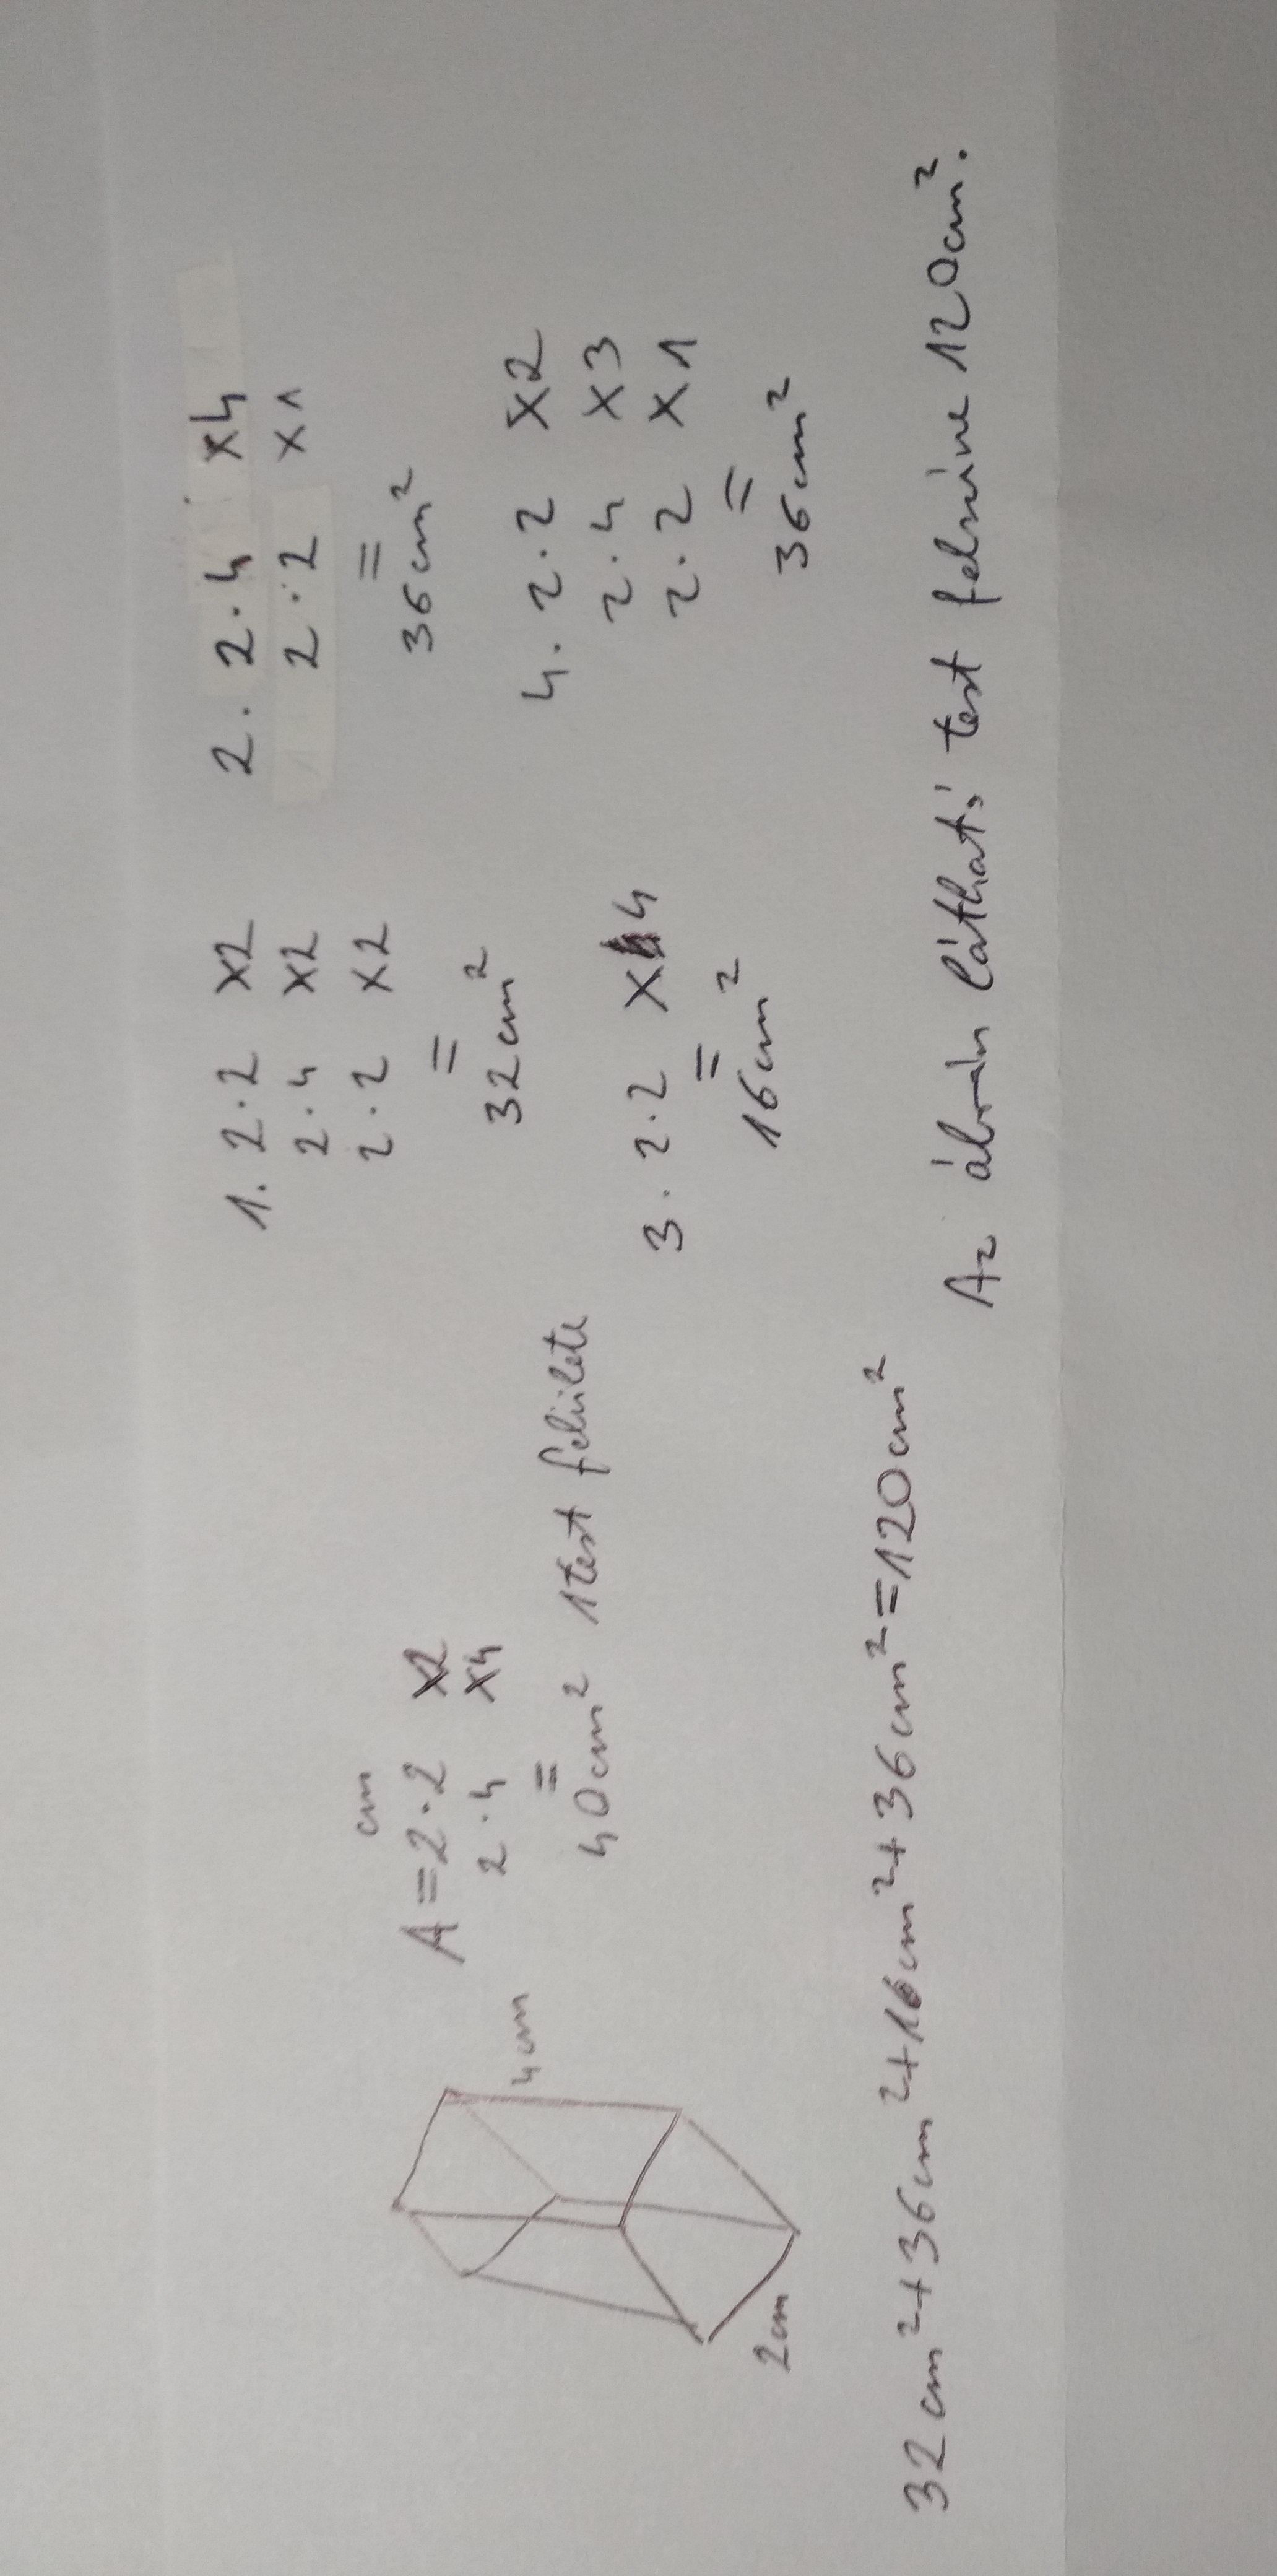 4cm
2cm
cm
A = 2 · 2 x2
2 · 4 x4
=
40cm² 1 test felülete
1. 2 · 2 x2
2 · 4 x2
2 · 2 x2
=
32cm²
2. 2 · 4 x4
2 · 2 x1
=
36cm²
3. 2 · 2 x4
=
16cm²
4. 2 · 2 x2
2 · 4 x3
2 · 2 x1
=
36cm²
32cm²+36cm²+16cm²+36cm²=120cm²
Az ábrán látható test felszíne 120cm².